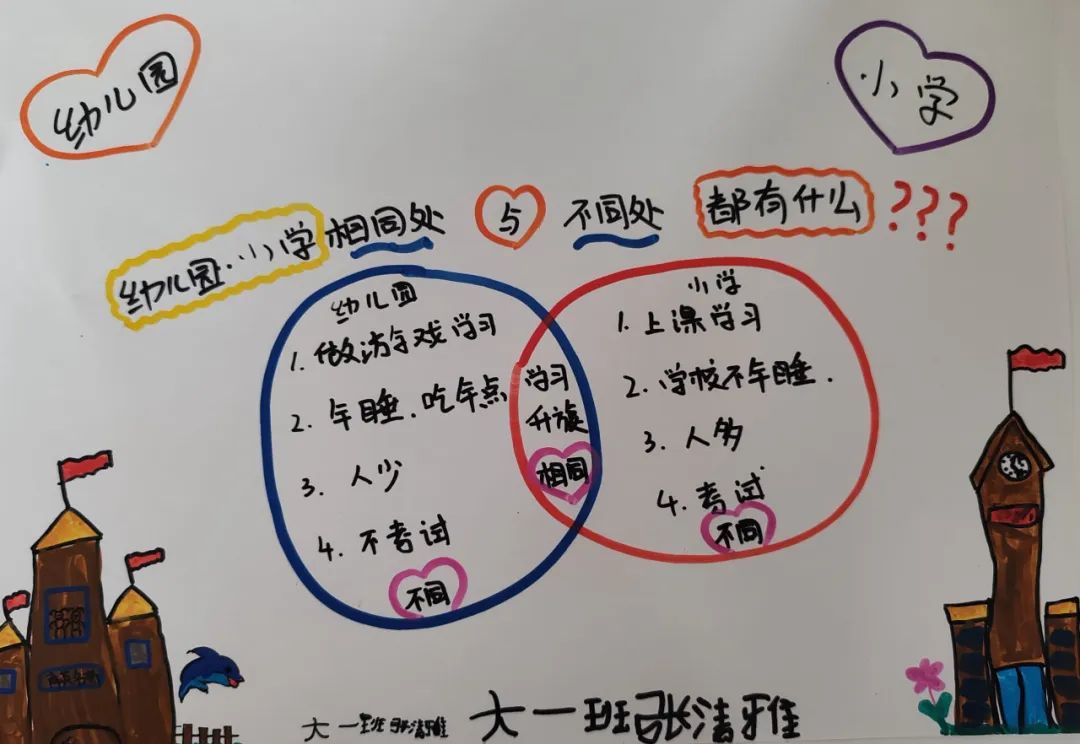 幼儿园
小学
幼儿园··小学 相同处 与 不同处 都有什么 ???
幼儿园
1. 做游戏学习
2. 午睡.吃午点
3. 人少
4. 不考试
不同
学习
升旗
相同
小学
1. 上课学习
2. 学校不午睡.
3. 人多
4. 考试
不同
大一班张洁雅
大一班张洁雅